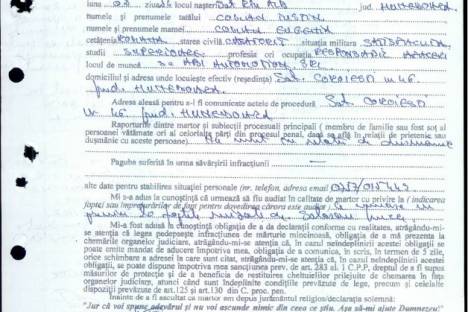 luna 02 ziua nașterii Sat Râu Alb jud. Hunedoara
numele și prenumele tatălui
numele și prenumele mamei Eugenia
cetățenia Română starea civilă căsătorit situația militară satisfăcută
studii superioare profesia ori ocupația responsabil
locul de muncă SC Automotion SRL
domiciliul și adresa unde locuiește efectiv (reședința) Sat. Coroiești nr 46.
jud. Hunedoara
Adresa aleasă pentru a-i fi comunicate actele de procedură Sat. Coroiești
nr 46. jud. Hunedoara
Raporturile dintre martor și subiecții procesuali principali ( membru de familie sau fost soț al
persoanei vătămate ori al celorlalte părți din procesul penal, dacă se află în relații de prietenie sau
dușmănie cu aceste persoane). Nu sunt în relații de dușmănie
Pagube suferită în urma săvârșirii infracțiunii —
alte date pentru stabilirea situației personale (nr. telefon, adresa email
Mi s-a adus la cunoștință că urmează să fiu audiat în calitate de martor cu privire la ( indicarea
faptei sau împrejurărilor de fapt pentru dovedirea cărora este audiat
Mi-a fost adusă la cunoștință obligația de a da declarații conforme cu realitatea, atrăgându-mi-
se atenția că legea pedepsește infracțiunea de mărturie mincinoasă, obligația de a mă prezenta la
chemările organelor judiciare, atrăgându-mi-se atenția că, în cazul neîndeplinirii acestei obligații se
poate emite mandat de aducere împotriva mea, obligația de a comunica, în scris, în termen de 5 zile,
orice schimbare a adresei la care sunt citat, atrăgându-mi-se atenția că, în cazul neîndeplinirii acestei
obligații, se poate dispune împotriva mea sancțiunea prev. de art. 283 al. 1 C.P.P, dreptul de a fi supus
măsurilor de protecție și de a beneficia de restituirea cheltuielilor prilejuite de chemarea în fața
organelor judiciare, atunci când sunt îndeplinite condițiile prevăzute de lege, precum și celelalte
dispoziții prevăzute de art.125 și art.130 din C. proc. pen.
Înainte de a fi ascultat ca martor am depus jurământul religios/declarația solemnă:
"Jur că voi spune adevărul și nu voi ascunde nimic din ceea ce știu. Așa să-mi ajute Dumnezeu!"